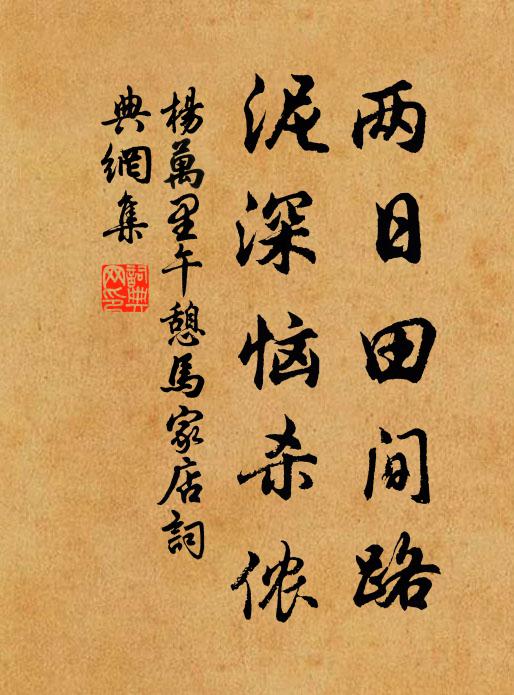 两日田间路
泥深恼杀侬
楊萬里午憩馬家店詞
典網集
詞典
网印